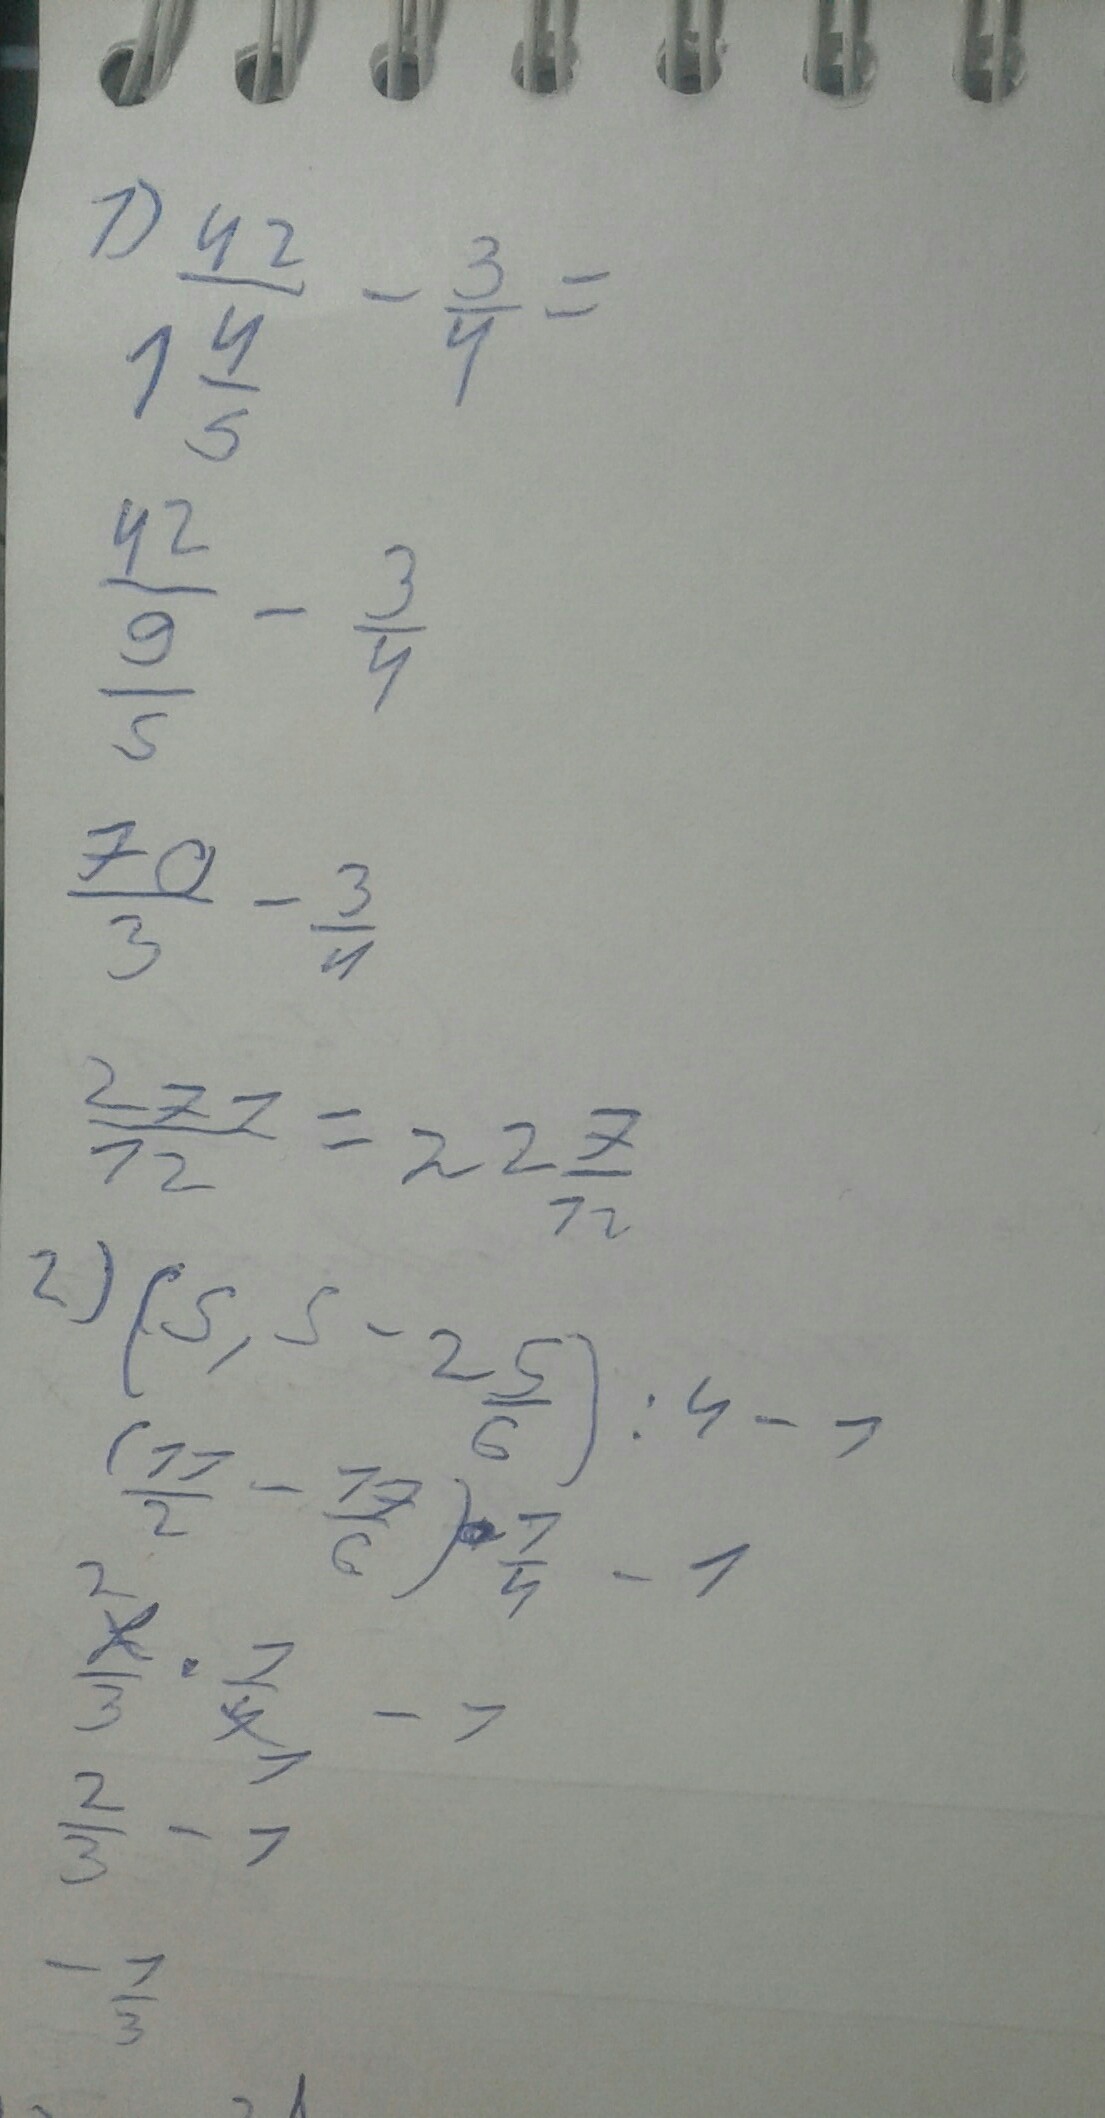 1) 42/(1 4/5) - 3/4 =
42/(9/5) - 3/4
70/3 - 3/4
271/12 = 22 7/12
2) (5,5 - 2 5/6) : 4 - 1
(11/2 - 17/6) • 1/4 - 1
2
/3 • 1/4 - 1
1
2/3 - 1
- 1/3